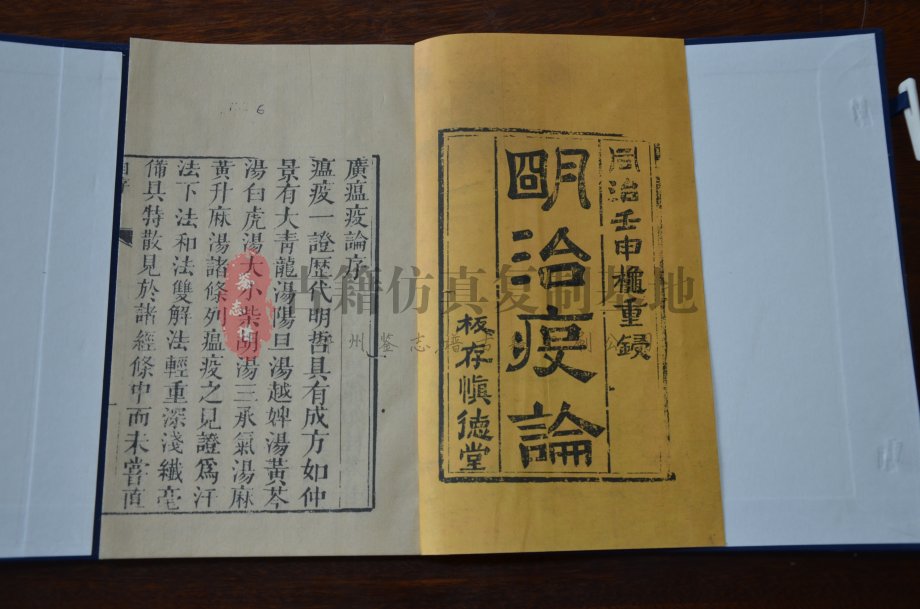 同治壬申重
朙治疫論
板存慎德堂
6
廣瘟疫論序
瘟疫一證歷代明哲具有成方如仲
景有大青龍湯陽旦湯越婢湯黃芩
湯白虎湯大小柴胡湯三承氣湯麻
黃升麻湯諸條列瘟疫之見證為汗
法下法和法雙解法輕重深淺纖毫
備具特散見於諸經條中而未嘗直
古籍仿真复制基地